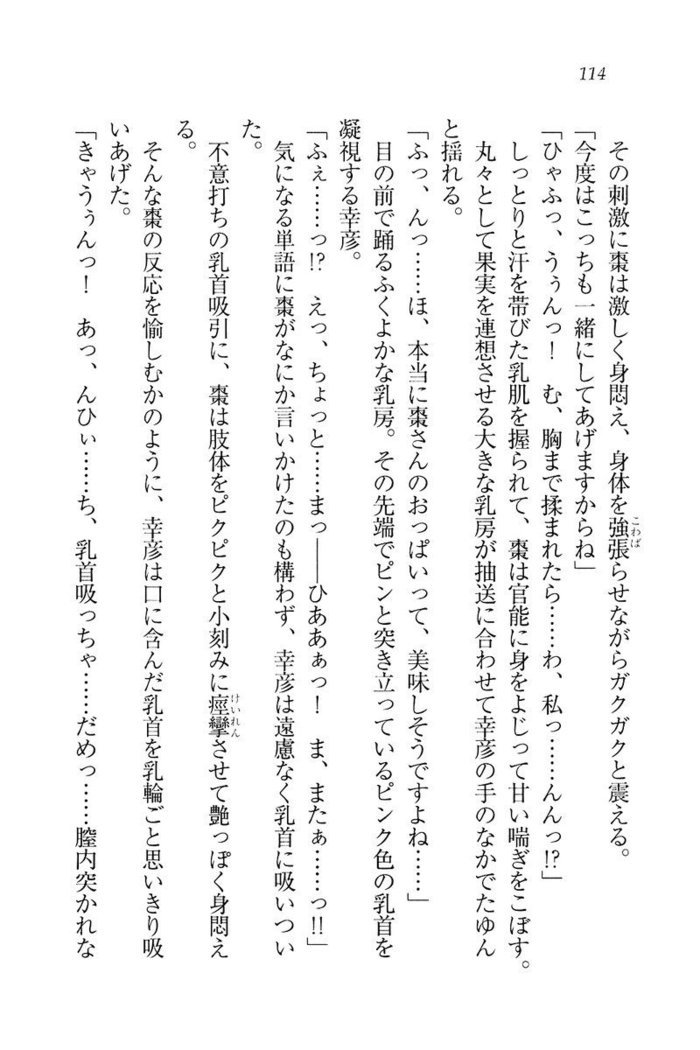 114
こわば
その刺激に棗は激しく身悶え、身体を強張らせながらガクガクと震える。
「今度はこっちも一緒にしてあげますからね」
「ひゃふっ、うぅんっ！　む、胸まで揉まれたら……わ、私っ……んんっ!?」
しっとりと汗を帯びた乳肌を握られて、棗は官能に身をよじって甘い喘ぎをこぼす。
丸々として果実を連想させる大きな乳房が抽送に合わせて幸彦の手のなかでたゆん
と揺れる。
「ふっ、んっ……ほ、本当に棗さんのおっぱいって、美味しそうですよね……」
目の前で踊るふくよかな乳房。その先端でピンと突き立っているピンク色の乳首を
凝視する幸彦。
「ふぇ……っ!?　えっ、ちょっと……まっ――ひああぁっ！　ま、またぁ……っ!!」
気になる単語に棗がなにか言いかけたのも構わず、幸彦は遠慮なく乳首に吸いつい
た。
けいれん
不意打ちの乳首吸引に、棗は肢体をピクピクと小刻みに痙攣させて艶っぽく身悶え
る。
そんな棗の反応を愉しむかのように、幸彦は口に含んだ乳首を乳輪ごと思いきり吸
いあげた。
「きゃうぅんっ！　あっ、んひぃ……ち、乳首吸っちゃ……だめっ……膣内突かれな